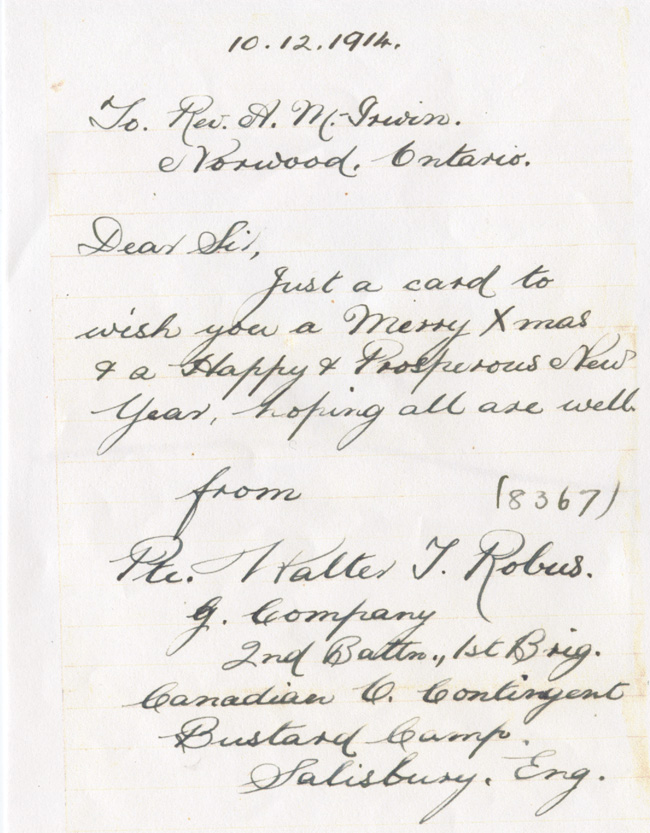 10.12.1914.
To. Rev. A. M. Irwin.
Norwood. Ontario.
Dear Sir,
Just a card to
wish you a Merry Xmas
& a Happy & Prosperous New
Year, hoping all are well.
from (8367)
Pte. Walter T. Robus.
G. Company
2nd Battn., 1st Brig.
Canadian O. Contingent
Bustard Camp.
Salisbury. Eng.